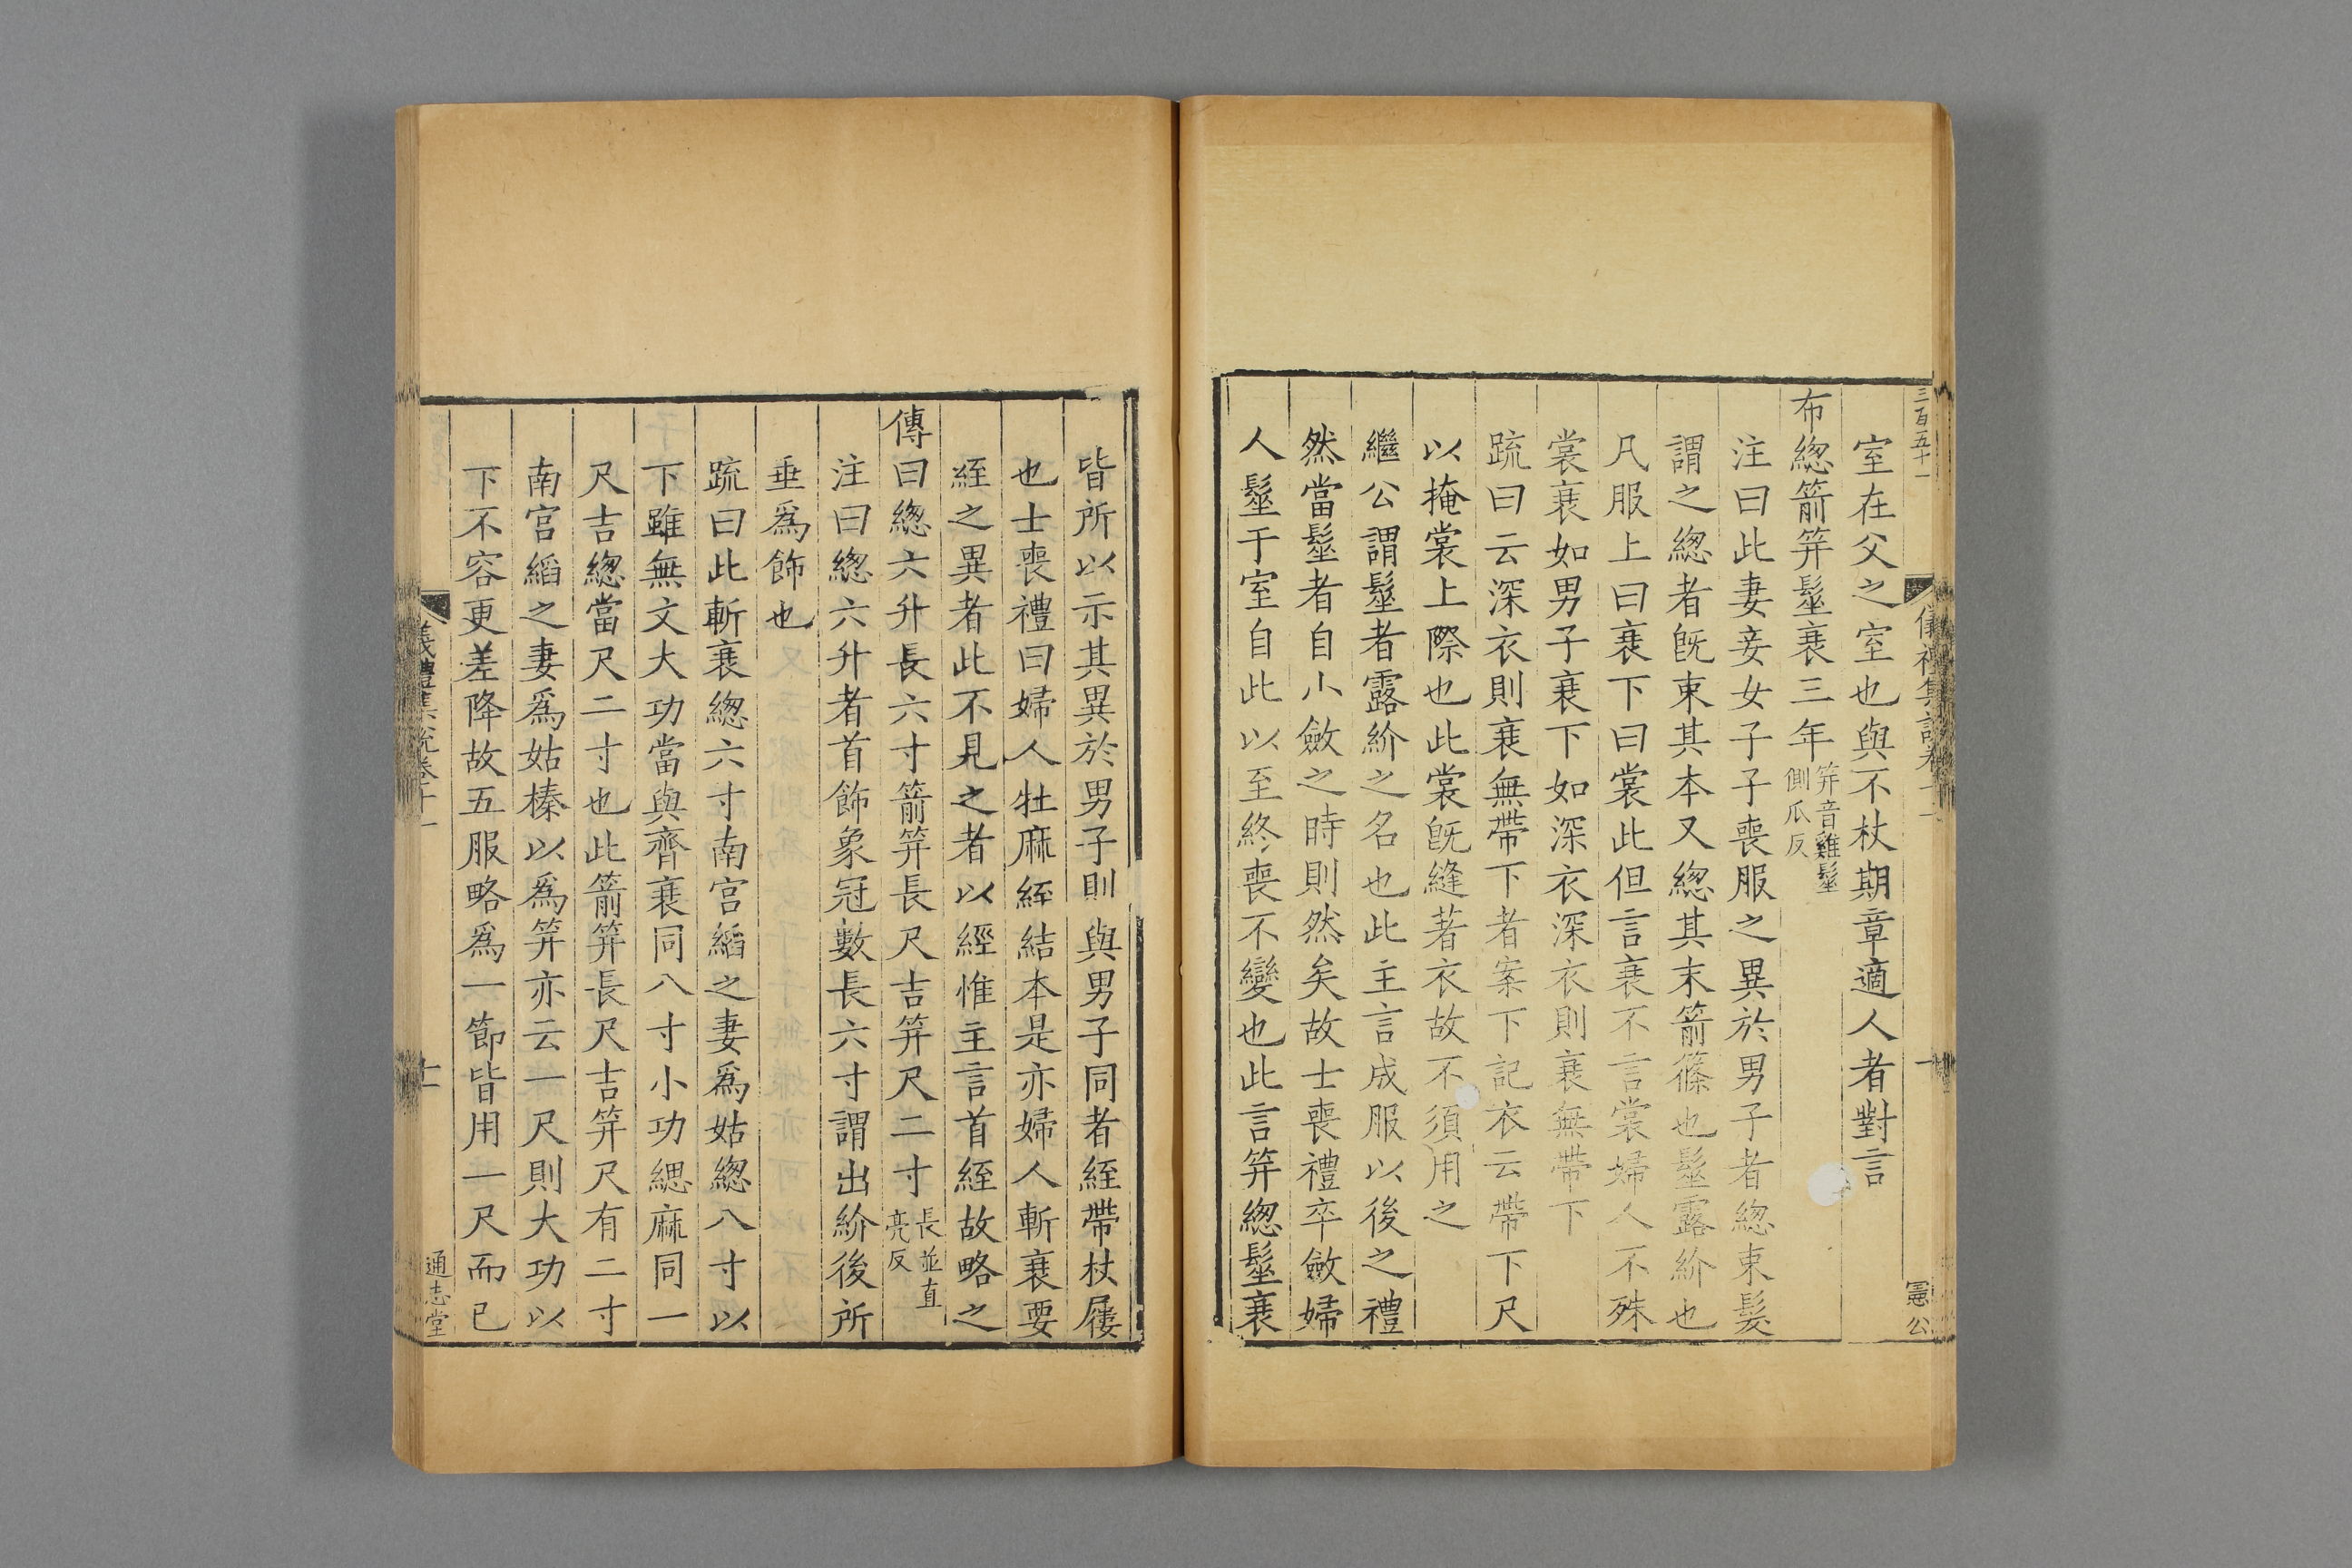 三百五十一
儀禮集說卷十一
憲公
室在父之室也與不杖期章適人者對言
布緫箭笄髽衰三年笄音雞髽側瓜反
注曰此妻妾女子子喪服之異於男子者緫束髮
謂之緫者旣束其本又緫其末箭篠也髽露紒也
凡服上曰衰下曰裳此但言衰不言裳婦人不殊
裳衰如男子衰下如深衣深衣則衰無帶下
疏曰云深衣則衰無帶下者案下記衣云帶下尺
以掩裳上際也此裳旣縫著衣故不須用之
繼公謂髽者露紒之名也此主言成服以後之禮
然當髽者自小斂之時則然矣故士喪禮卒斂婦
人髽于室自此以至終喪不變也此言笄緫髽衰
皆所以示其異於男子則與男子同者絰帶杖屨
也士喪禮曰婦人牡麻絰結本是亦婦人斬衰要
絰之異者此不見之者以經惟主言首絰故略之
傳曰緫六升長六寸箭笄長尺吉笄尺二寸長並直亮反
注曰緫六升者首飾象冠數長六寸謂出紒後所
垂爲飾也
疏曰此斬衰緫六寸南宮縚之妻爲姑緫八寸以
下雖無文大功當與齊衰同八寸小功緦麻同一
尺吉緫當尺二寸也此箭笄長尺吉笄尺有二寸
南宮縚之妻爲姑榛以爲笄亦云一尺則大功以
下不容更差降故五服略爲一節皆用一尺而已
儀禮集說卷十一
十一
通志堂